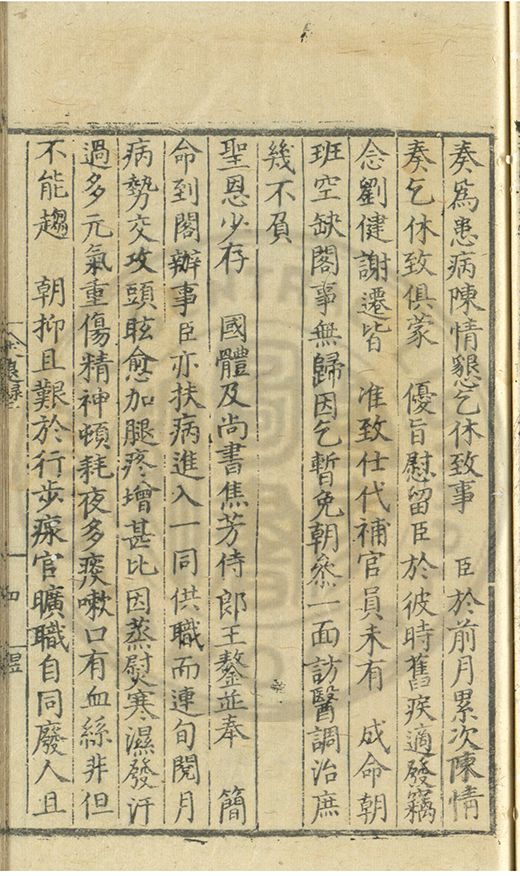 奏為患病陳情懇乞休致事　臣於前月累次陳情
奏乞休致俱蒙　優旨慰留臣於彼時舊疾適發竊
念劉健謝遷皆　准致仕代補官員未有　成命朝
班空缺閣事無歸因乞暫免朝叅一面訪醫調治庶
幾不負
聖恩少存　國體及尚書焦芳侍郎王鏊並奉　簡
命到閣辦事臣亦扶病進入一同供職而連旬閱月
病勢交攻頭眩愈加腿疼增甚比因蒸熨寒濕發汗
過多元氣重傷精神頓耗夜多痰嗽口有血絲非但
不能趨　朝抑且艱於行步瘝官曠職自同廢人且